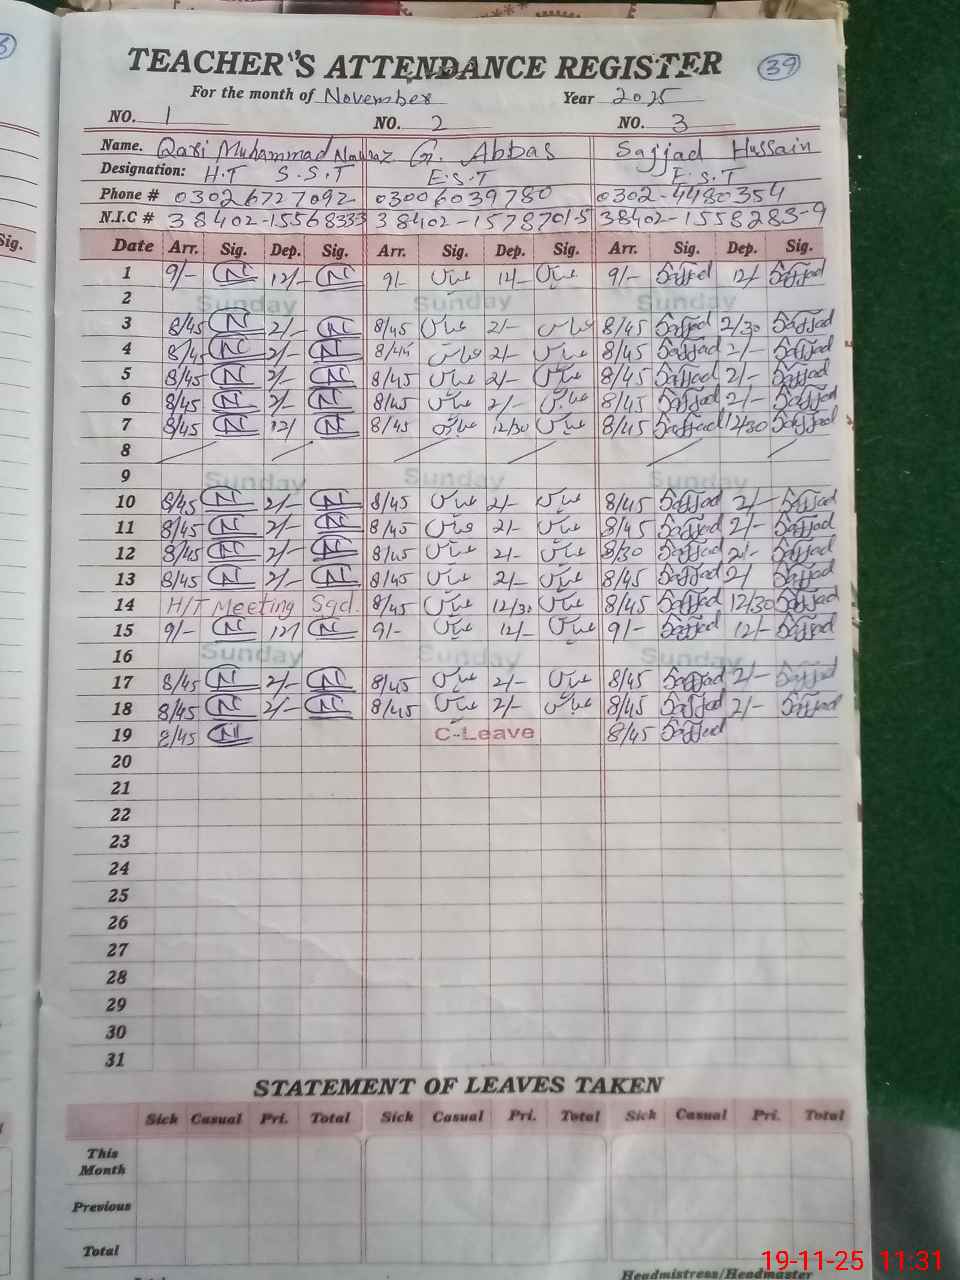 39
TEACHER'S ATTENDANCE REGISTER
For the month of November Year 2025
NO. 1 NO. 2 NO. 3
Name. Qari Muhammad Nawaz G. Abbas Sajjad Hussain
Designation: H.T S.S.T E.S.T E.S.T
Phone # 03026727092 03006039780 0302-4480354
N.I.C # 38402-15568333 38402-15787015 38402-1558283-9
Sig. Date Arr. Sig. Dep. Sig. Arr. Sig. Dep. Sig. Arr. Sig. Dep. Sig.
1 9/- N 12/- N 9/- عباس 12/- عباس 9/- Sajjad 12/- Sajjad
2 Sunday Sunday Sunday
3 8/45 N 2/- N 8/45 عباس 2/- عباس 8/45 Sajjad 2/30 Sajjad
4 8/45 N 2/- N 8/45 عباس 2/- عباس 8/45 Sajjad 2/- Sajjad
5 8/45 N 2/- N 8/45 عباس 2/- عباس 8/45 Sajjad 2/- Sajjad
6 8/45 N 2/- N 8/45 عباس 2/- عباس 8/45 Sajjad 2/- Sajjad
7 8/45 N 12/ N 8/45 عباس 12/30 عباس 8/45 Sajjad 12/30 Sajjad
8
9 Sunday Sunday Sunday
10 8/45 N 2/- N 8/45 عباس 2/- عباس 8/45 Sajjad 2/- Sajjad
11 8/45 N 2/- N 8/45 عباس 2/- عباس 8/45 Sajjad 2/- Sajjad
12 8/45 N 2/- N 8/45 عباس 2/- عباس 8/30 Sajjad 2/- Sajjad
13 8/45 N 2/- N 8/45 عباس 2/- عباس 8/45 Sajjad 2/ Sajjad
14 H/T Meeting Sgd. 8/45 عباس 12/30 عباس 8/45 Sajjad 12/30 Sajjad
15 9/- N 12/ N 9/- عباس 12/- عباس 9/- Sajjad 12/- Sajjad
16 Sunday Sunday Sunday
17 8/45 N 2/- N 8/45 عباس 2/- عباس 8/45 Sajjad 2/- Sajjad
18 8/45 N 2/- N 8/45 عباس 2/- عباس 8/45 Sajjad 2/- Sajjad
19 8/45 N C-Leave 8/45 Sajjad
20
21
22
23
24
25
26
27
28
29
30
31
STATEMENT OF LEAVES TAKEN
Sick Casual Pri. Total Sick Casual Pri. Total Sick Casual Pri. Total
This
Month
Previous
Total
19-11-25 11:31
Headmistress/Headmaster